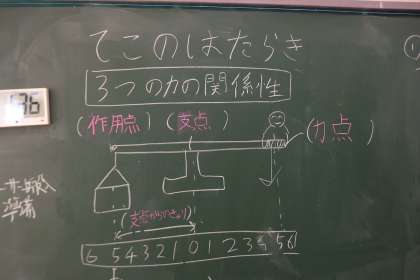 てこのはたらき
3つの力の関係性
(作用点) (支点) (力点)
準備
(支点からのきょり)
6 5 4 3 2 1 0 1 2 3 4 5 6